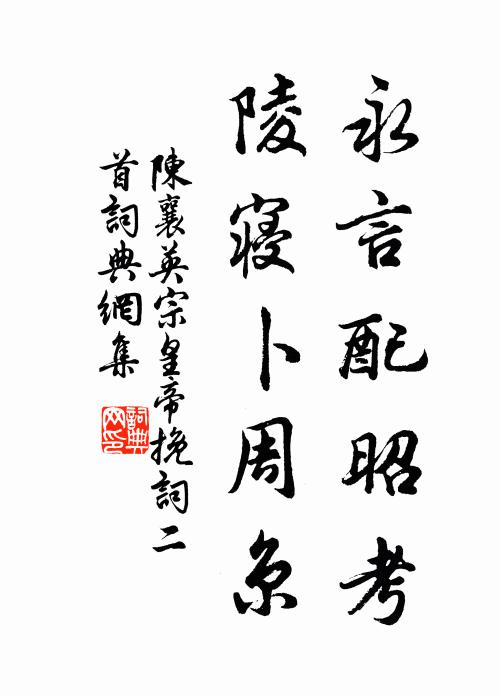 永言配昭考
陵寢卜周京
陳襄英宗皇帝挽詞二
首詞典網集
詞典
网印